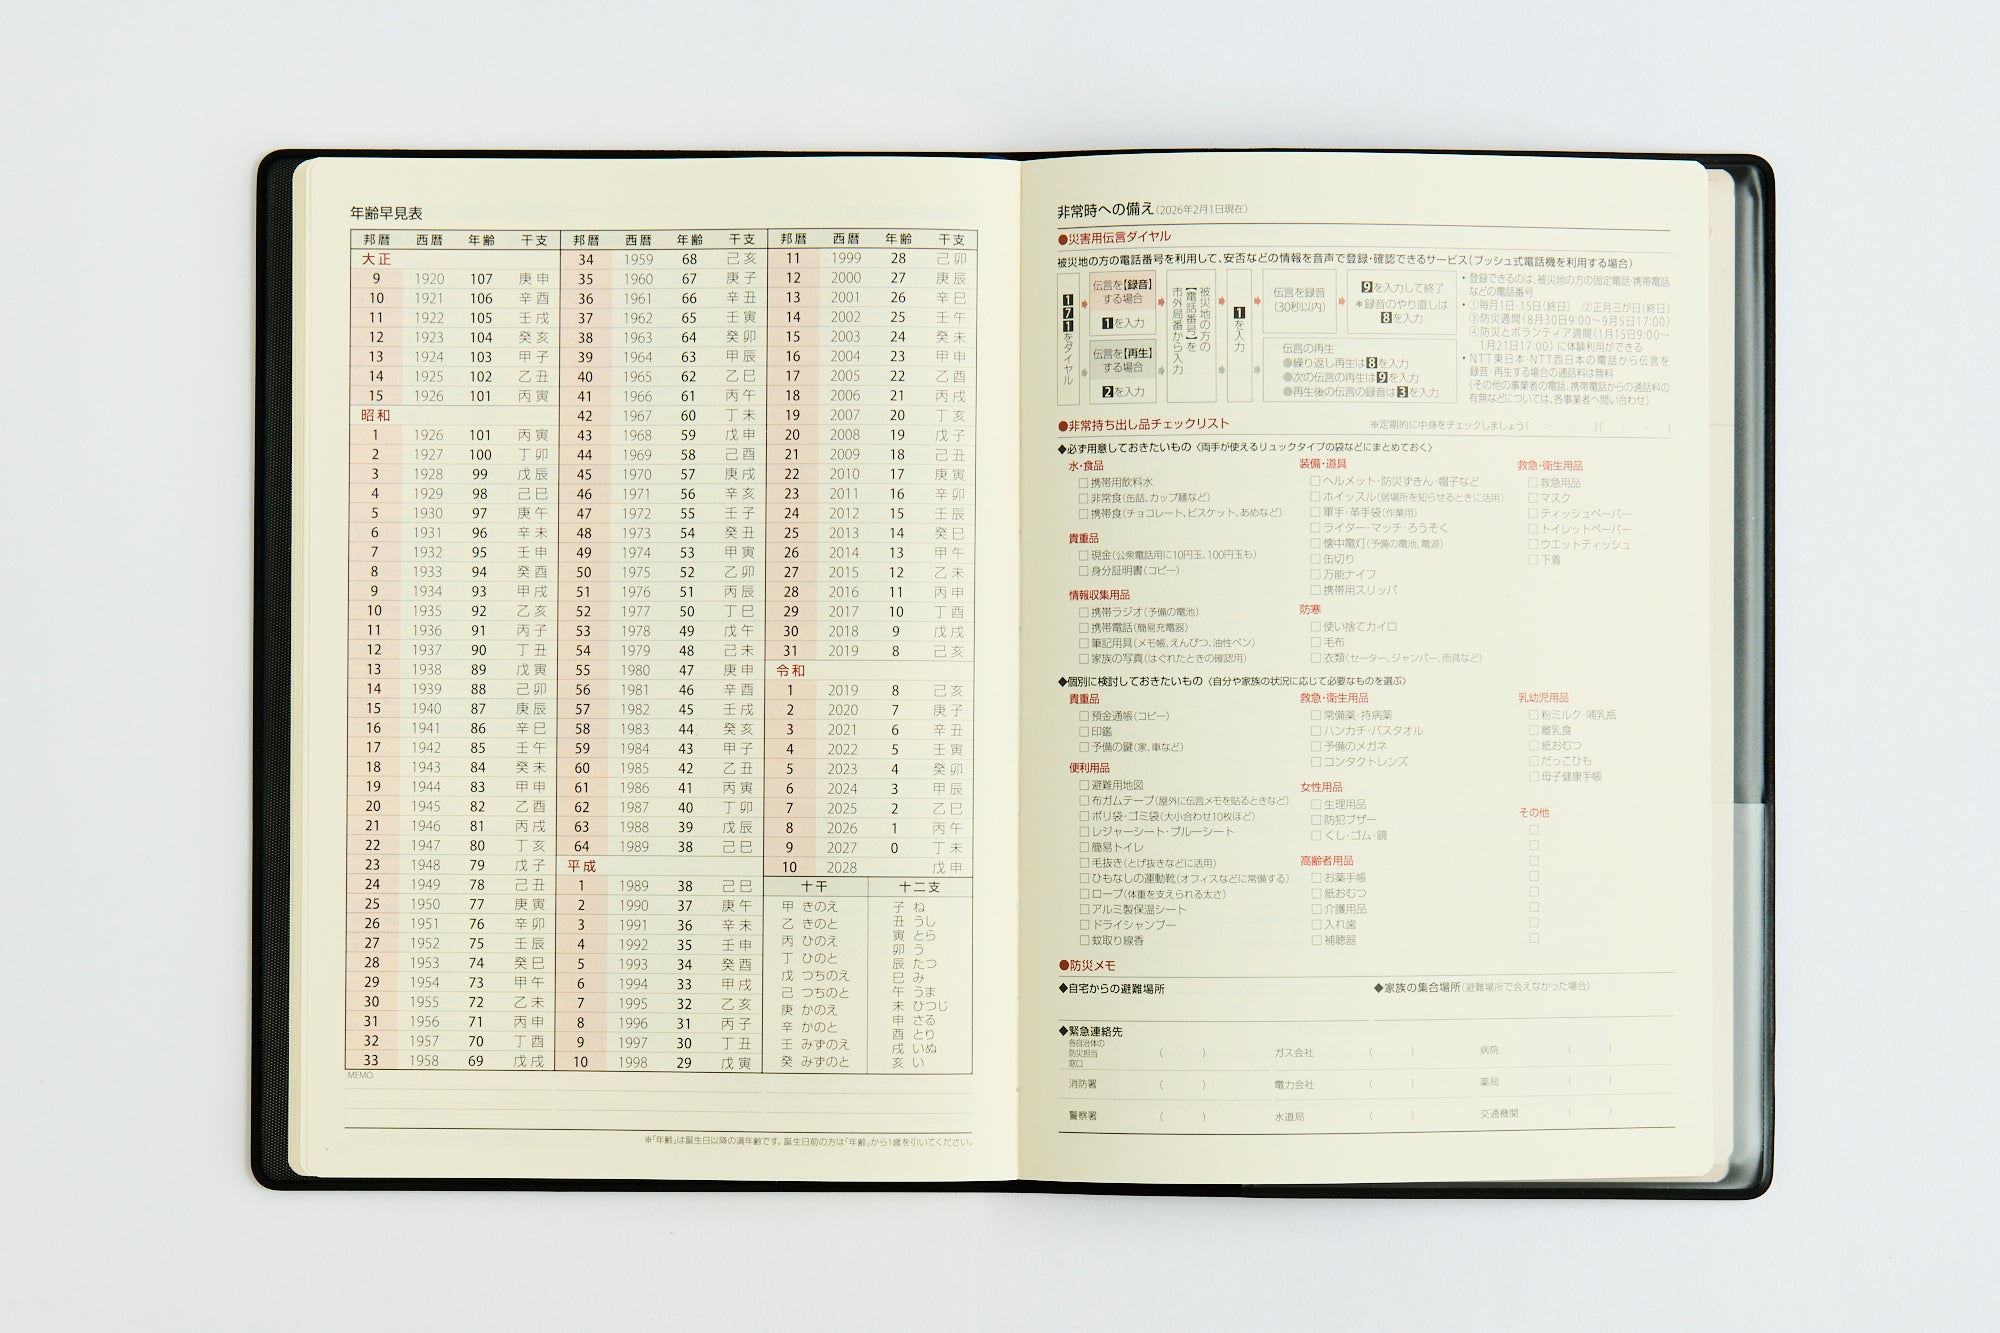 年齢早見表
邦暦 西暦 年齢 干支
大正
9 1920 107 庚申
10 1921 106 辛酉
11 1922 105 壬戌
12 1923 104 癸亥
13 1924 103 甲子
14 1925 102 乙丑
15 1926 101 丙寅
昭和
1 1926 101 丙寅
2 1927 100 丁卯
3 1928 99 戊辰
4 1929 98 己巳
5 1930 97 庚午
6 1931 96 辛未
7 1932 95 壬申
8 1933 94 癸酉
9 1934 93 甲戌
10 1935 92 乙亥
11 1936 91 丙子
12 1937 90 丁丑
13 1938 89 戊寅
14 1939 88 己卯
15 1940 87 庚辰
16 1941 86 辛巳
17 1942 85 壬午
18 1943 84 癸未
19 1944 83 甲申
20 1945 82 乙酉
21 1946 81 丙戌
22 1947 80 丁亥
23 1948 79 戊子
24 1949 78 己丑
25 1950 77 庚寅
26 1951 76 辛卯
27 1952 75 壬辰
28 1953 74 癸巳
29 1954 73 甲午
30 1955 72 乙未
31 1956 71 丙申
32 1957 70 丁酉
33 1958 69 戊戌
邦暦 西暦 年齢 干支
34 1959 68 己亥
35 1960 67 庚子
36 1961 66 辛丑
37 1962 65 壬寅
38 1963 64 癸卯
39 1964 63 甲辰
40 1965 62 乙巳
41 1966 61 丙午
42 1967 60 丁未
43 1968 59 戊申
44 1969 58 己酉
45 1970 57 庚戌
46 1971 56 辛亥
47 1972 55 壬子
48 1973 54 癸丑
49 1974 53 甲寅
50 1975 52 乙卯
51 1976 51 丙辰
52 1977 50 丁巳
53 1978 49 戊午
54 1979 48 己未
55 1980 47 庚申
56 1981 46 辛酉
57 1982 45 壬戌
58 1983 44 癸亥
59 1984 43 甲子
60 1985 42 乙丑
61 1986 41 丙寅
62 1987 40 丁卯
63 1988 39 戊辰
64 1989 38 己巳
平成
1 1989 38 己巳
2 1990 37 庚午
3 1991 36 辛未
4 1992 35 壬申
5 1993 34 癸酉
6 1994 33 甲戌
7 1995 32 乙亥
8 1996 31 丙子
9 1997 30 丁丑
10 1998 29 戊寅
邦暦 西暦 年齢 干支
11 1999 28 己卯
12 2000 27 庚辰
13 2001 26 辛巳
14 2002 25 壬午
15 2003 24 癸未
16 2004 23 甲申
17 2005 22 乙酉
18 2006 21 丙戌
19 2007 20 丁亥
20 2008 19 戊子
21 2009 18 己丑
22 2010 17 庚寅
23 2011 16 辛卯
24 2012 15 壬辰
25 2013 14 癸巳
26 2014 13 甲午
27 2015 12 乙未
28 2016 11 丙申
29 2017 10 丁酉
30 2018 9 戊戌
31 2019 8 己亥
令和
1 2019 8 己亥
2 2020 7 庚子
3 2021 6 辛丑
4 2022 5 壬寅
5 2023 4 癸卯
6 2024 3 甲辰
7 2025 2 乙巳
8 2026 1 丙午
9 2027 0 丁未
10 2028 戊申
十干
甲 きのえ
乙 きのと
丙 ひのえ
丁 ひのと
戊 つちのえ
己 つちのと
庚 かのえ
辛 かのと
壬 みずのえ
癸 みずのと
十二支
子 ね
丑 うし
寅 とら
卯 う
辰 たつ
巳 み
午 うま
未 ひつじ
申 さる
酉 とり
戌 いぬ
亥 い
MEMO
※「年齢」は誕生日以降の満年齢です。誕生日前の方は「年齢」から1歳を引いてください。
非常時への備え（2026年2月1日現在）
●災害用伝言ダイヤル
被災地の方の電話番号を利用して、安否などの情報を音声で登録・確認できるサービス（プッシュ式電話機を利用する場合）
171をダイヤル
伝言を【録音】
する場合
1を入力
伝言を【再生】
する場合
2を入力
被災地の方の
【電話番号】を
市外局番から入力
1を入力
伝言を録音
（30秒以内）
9を入力して終了
＊録音のやり直しは
8を入力
伝言の再生
●繰り返し再生は8を入力
●次の伝言の再生は9を入力
●再生後の伝言の録音は3を入力
・登録できるのは、被災地の方の固定電話・携帯電話
などの電話番号
・①毎月1日・15日（終日） ②正月三が日（終日）
③防災週間（8月30日9:00～9月5日17:00）
④防災とボランティア週間（1月15日9:00～
1月21日17:00）に体験利用ができる
・NTT東日本・NTT西日本の電話から伝言を
録音・再生する場合の通話料は無料
（その他の事業者の電話、携帯電話からの通話料の
有無などについては、各事業者へ問い合わせ）
●非常持ち出し品チェックリスト ※定期的に中身をチェックしましょう（ ・ ・ ）（ ・ ・ ）
◆必ず用意しておきたいもの〈両手が使えるリュックタイプの袋などにまとめておく〉
水・食品
□携帯用飲料水
□非常食（缶詰、カップ麺など）
□携帯食（チョコレート、ビスケット、あめなど）
貴重品
□現金（公衆電話用に10円玉、100円玉も）
□身分証明書（コピー）
情報収集用品
□携帯ラジオ（予備の電池）
□携帯電話（簡易充電器）
□筆記用具（メモ帳、えんぴつ、油性ペン）
□家族の写真（はぐれたときの確認用）
装備・道具
□ヘルメット・防災ずきん・帽子など
□ホイッスル（居場所を知らせるときに活用）
□軍手・革手袋（作業用）
□ライター・マッチ・ろうそく
□懐中電灯（予備の電池、電源）
□缶切り
□万能ナイフ
□携帯用スリッパ
防寒
□使い捨てカイロ
□毛布
□衣類（セーター、ジャンパー、雨具など）
救急・衛生用品
□救急用品
□マスク
□ティッシュペーパー
□トイレットペーパー
□ウエットティッシュ
□下着
◆個別に検討しておきたいもの〈自分や家族の状況に応じて必要なものを選ぶ〉
貴重品
□預金通帳（コピー）
□印鑑
□予備の鍵（家、車など）
便利用品
□避難用地図
□布ガムテープ（屋外に伝言メモを貼るときなど）
□ポリ袋・ゴミ袋（大小合わせ10枚ほど）
□レジャーシート・ブルーシート
□簡易トイレ
□毛抜き（とげ抜きなどに活用）
□ひもなしの運動靴（オフィスなどに常備する）
□ロープ（体重を支えられる太さ）
□アルミ製保温シート
□ドライシャンプー
□蚊取り線香
救急・衛生用品
□常備薬・持病薬
□ハンカチ・バスタオル
□予備のメガネ
□コンタクトレンズ
女性用品
□生理用品
□防犯ブザー
□くし・ゴム・鏡
高齢者用品
□お薬手帳
□紙おむつ
□介護用品
□入れ歯
□補聴器
乳幼児用品
□粉ミルク・哺乳瓶
□離乳食
□紙おむつ
□だっこひも
□母子健康手帳
その他
□
□
□
□
□
□
□
□
●防災メモ
◆自宅からの避難場所 ◆家族の集合場所（避難場所で会えなかった場合）
◆緊急連絡先
各自治体の
防災担当
窓口 （ ） ガス会社 （ ） 病院 （ ）
消防署 （ ） 電力会社 （ ） 薬局 （ ）
警察署 （ ） 水道局 （ ） 交通機関 （ ）